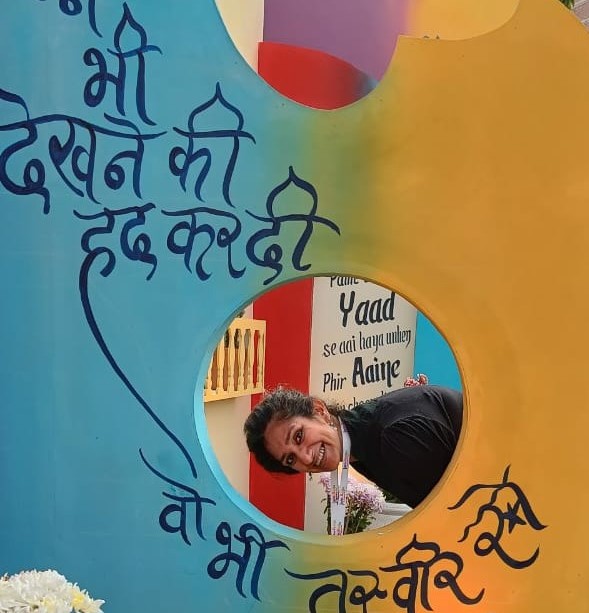 भी
देखने की
हद कर दी
Yaad
se aai haya unhen
Phir Aaine
वो
भी तस्वीर से